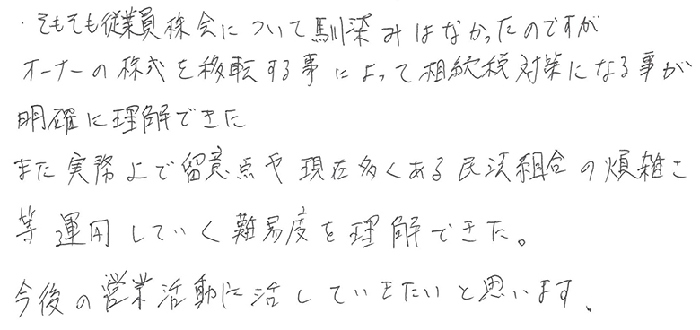 ・そもそも従業員株会について馴染みはなかったのですが
オーナーの株式を移転する事によって相続税対策になる事が
明確に理解できた
また実務上で留意点や現在多くある民法組合の煩雑さ
等運用していく難易度を理解できた。
今後の営業活動に活していきたいと思います、